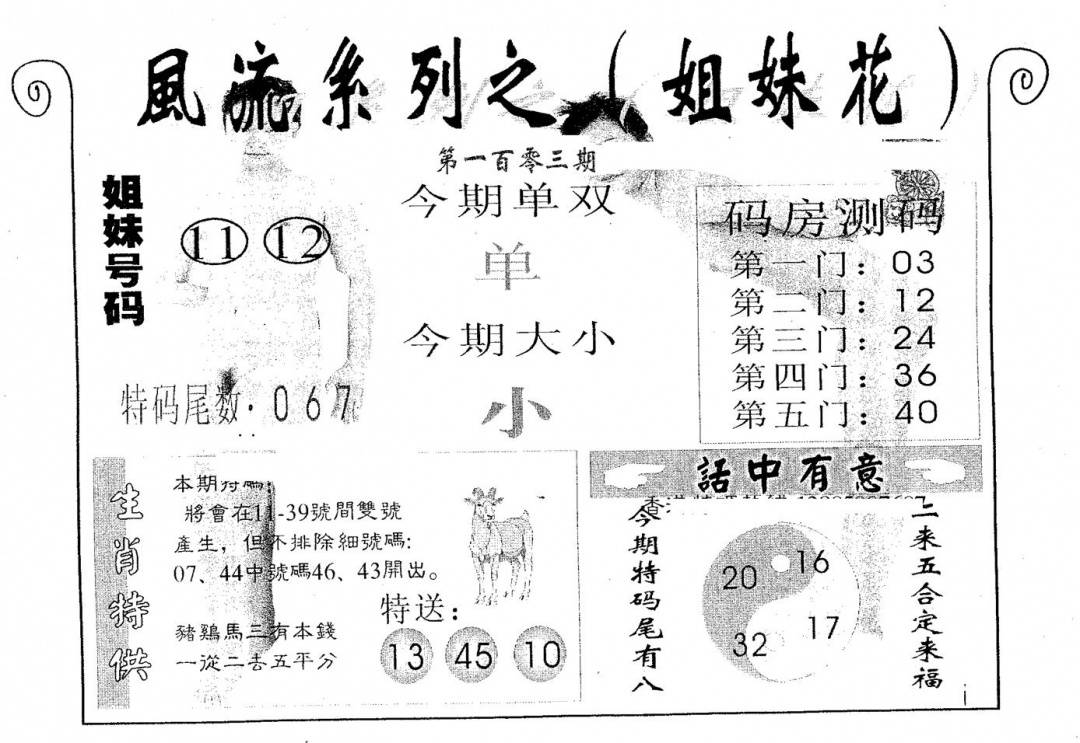 風流系列之（姐妹花）
第一百零三期
姐妹号码
11 12
特码尾数·067
今期单双
单
今期大小
小
码房测码
第一门：03
第二门：12
第三门：24
第四门：36
第五门：40
生肖特供
本期
將會在11-39號間雙號
產生，但不排除細號碼:
07、44中號碼46、43開出。
豬鷄馬三有本錢
一從二去五平分
特送：
13 45 10
話中有意
今期特码尾有八
20 16
32 17
二来五合定来福